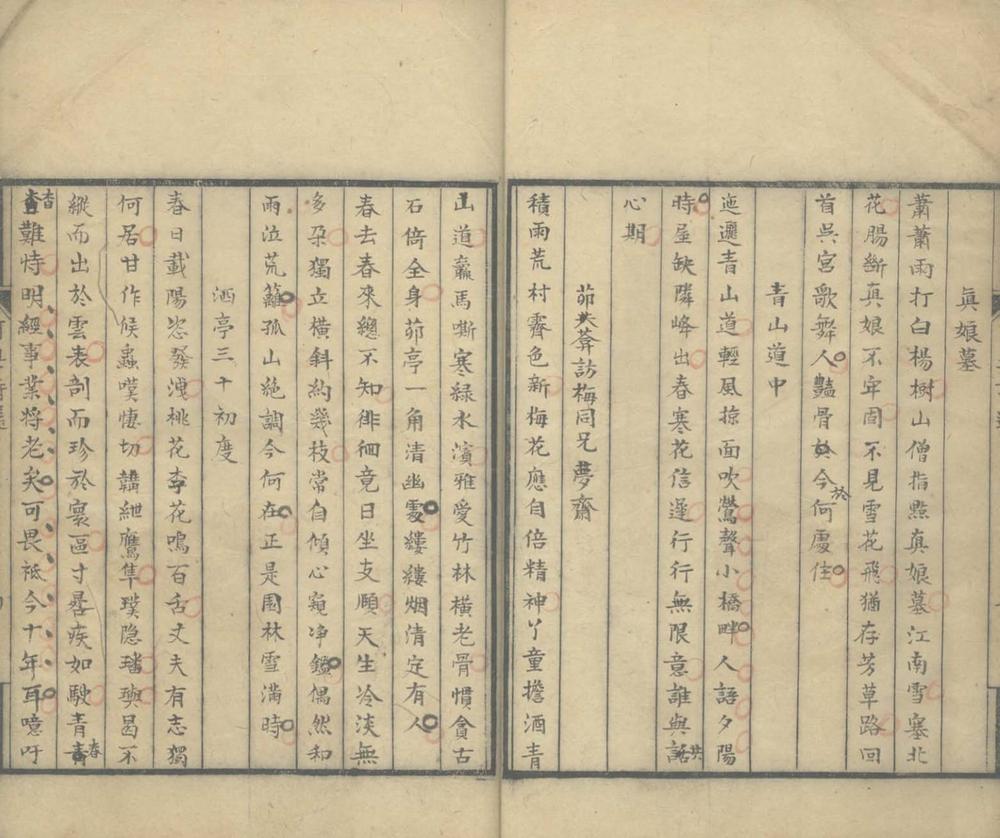 真娘墓
蕭蕭雨打白楊樹山僧指點真娘墓江南雪塞北
花腸斷真娘不牢固不見雪花飛猶存芳草路回
首吳宮歌舞人豔骨於今何處住
青山道中
迤邐青山道輕風掠面吹鶯聲小橋畔人語夕陽
時屋缺隣峰出春寒花信遲行行無限意誰與話共
心期
茆夫葊訪梅同兄夢齋
積雨荒村霽色新梅花應自倍精神丫童擔酒青
山道羸馬嘶寒緑水濱雅愛竹林橫老骨慣貪古
石倚全身茆亭一角清幽處縷縷烟清定有人
春去春來總不知徘徊竟日坐支頤天生冷淡無
多朶獨立橫斜約幾枝常自傾心窺净鏡偶然和
雨泣荒籬孤山絶調今何在正是園林雪滿時
洒亭三十初度
春日載陽恣發洩桃花李花鳴百舌丈夫有志獨
何居甘作候蟲嘆悽切韝紲鷹隼璞隐璠璵曷不
縱而出於雲表剖而珍於寰區寸晷疾如駛青春
杳難恃明經事業将老矣可畏祗今十年耳噫吁